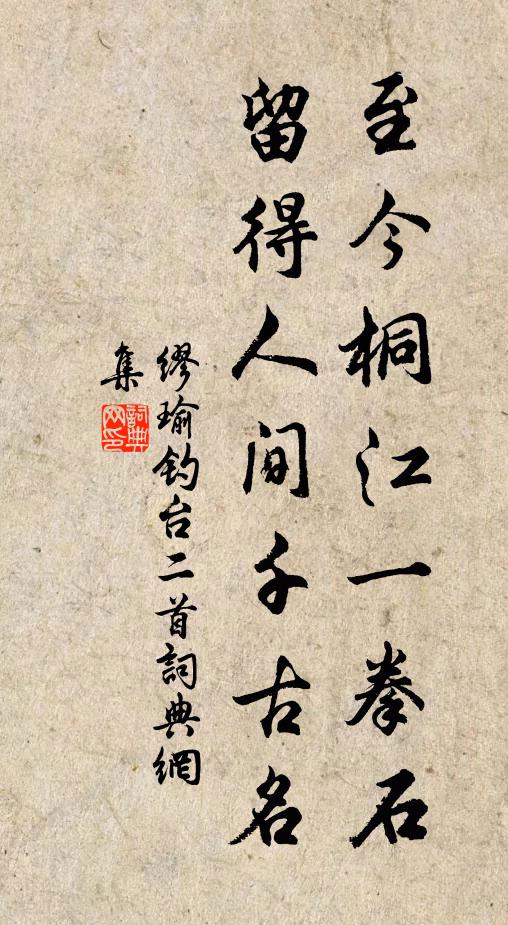 至今桐江一拳石
留得人間千古名
繆瑜釣台二首詞典網
集
詞典
网印